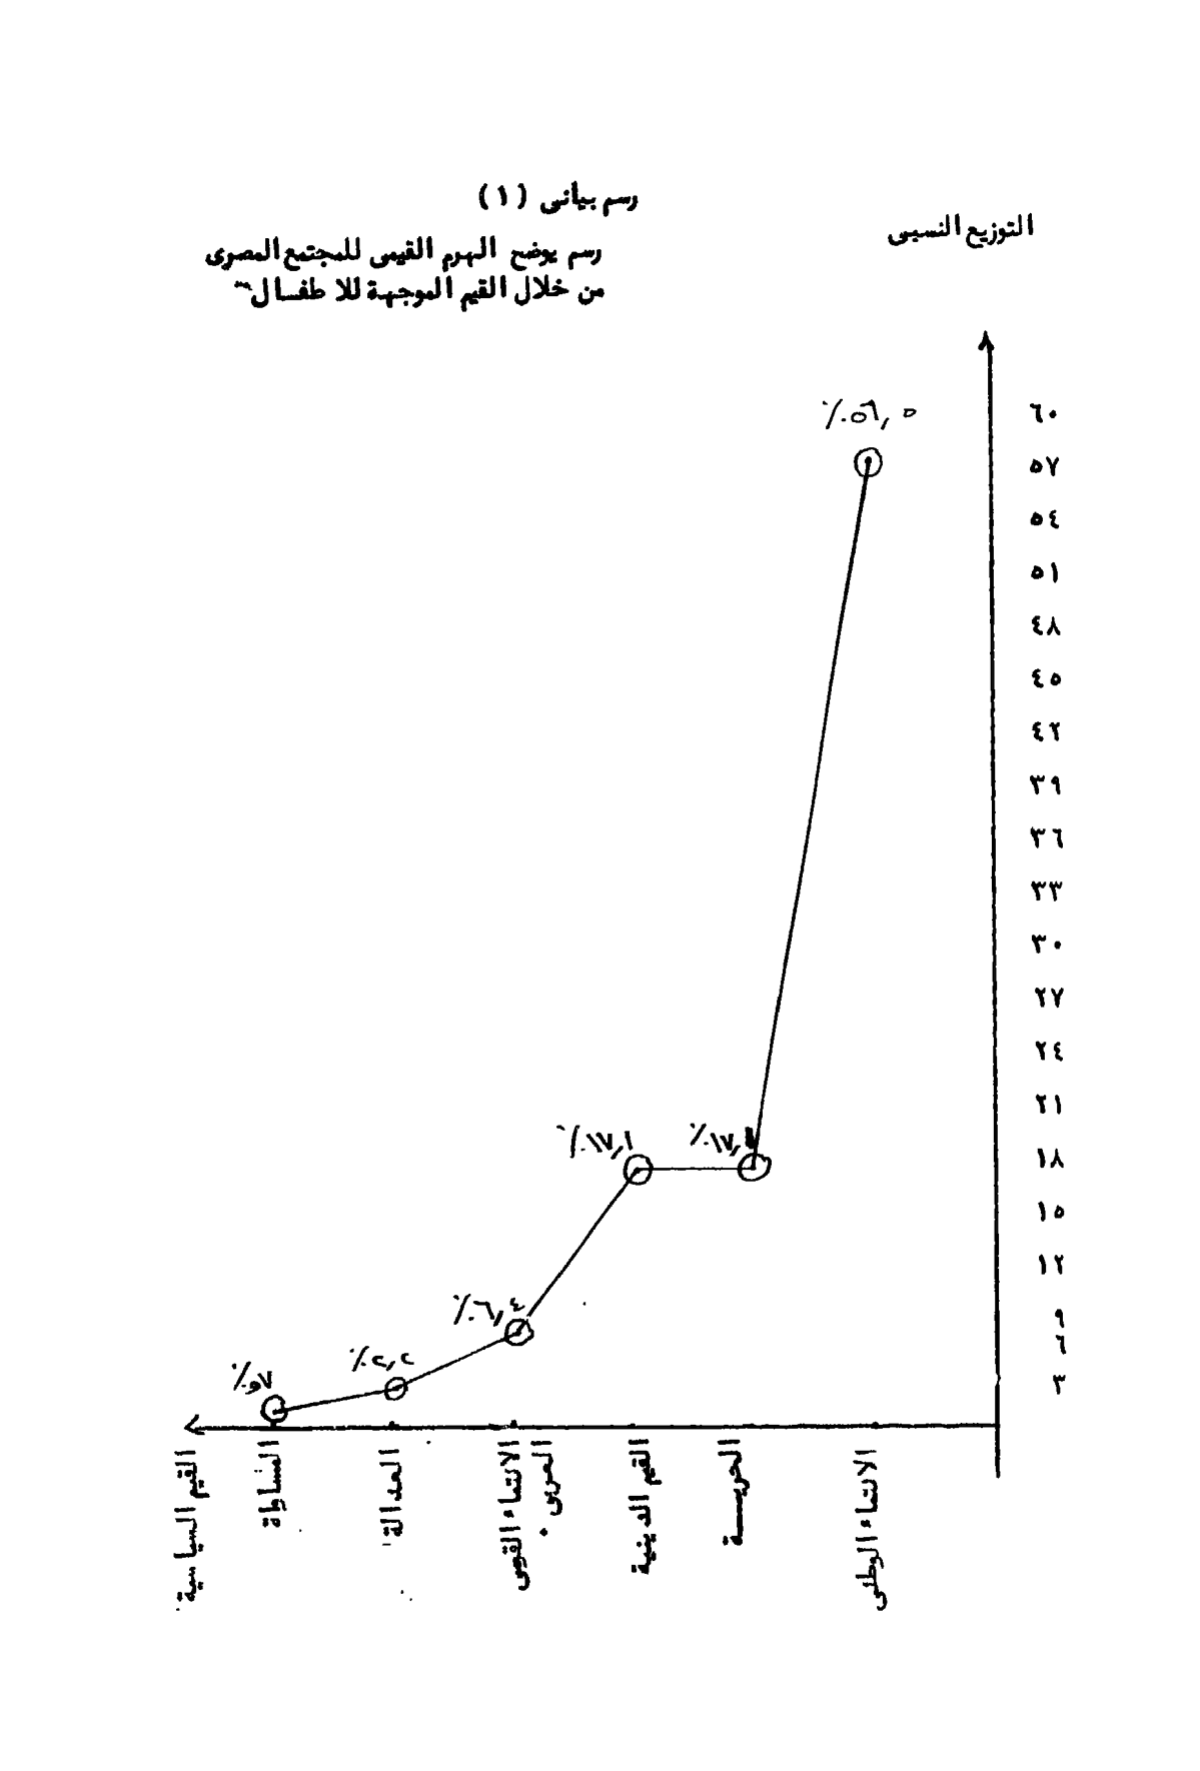 رسم بيانى (١)
التوزيع النسبى
رسم يوضح الهرم القيمى للمجتمع المصرى
من خلال القيم الموجهة للاطفسال
٦٠
٥٧
٥٤
٥١
٤٨
٤٥
٤٢
٣٩
٣٦
٣٣
٣٠
٢٧
٢٤
٢١
١٨
١٥
١٢
٩
٦
٣
٥٦,٥٪
١٧,١٪
٦,٤٪
٢,٢٪
٧و٪
الانتماء الوطنى
الحريـــة
القيم الدينية
الانتماء القومى
العربى
العدالة
المساواة
القيم السياسية